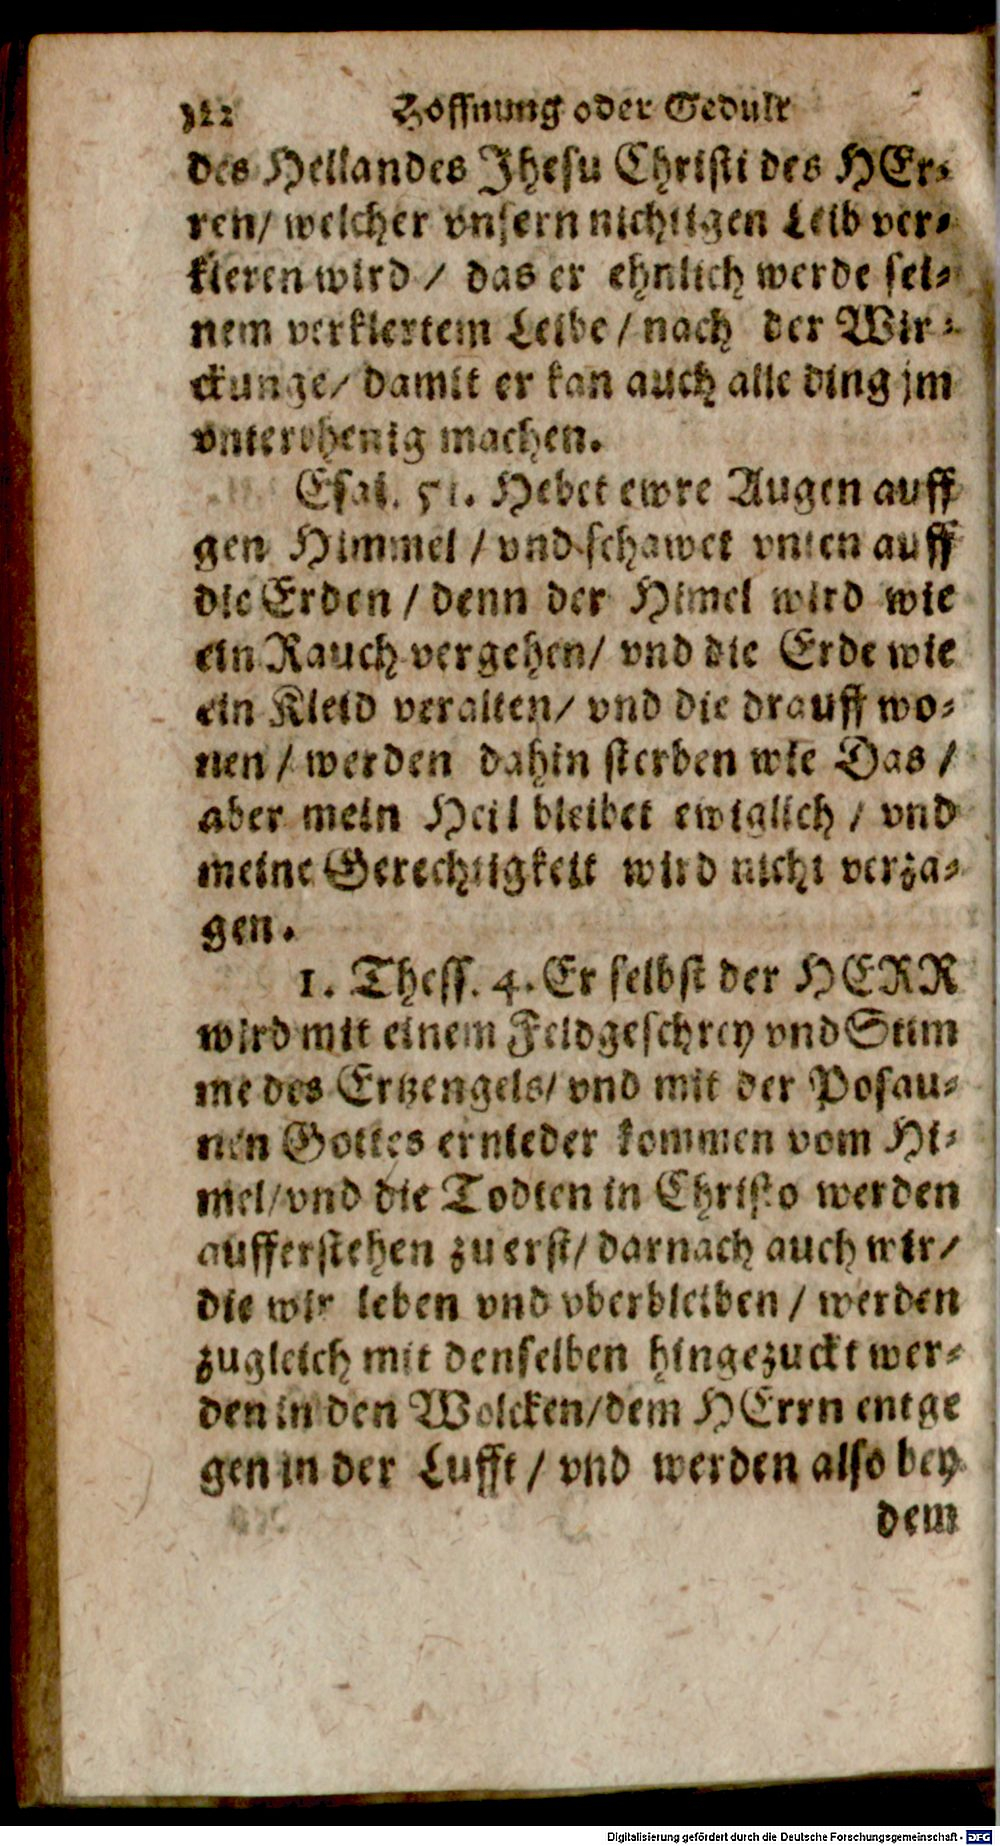 322 Hoffnung oder Gedult
des Heilandes Jhesu Christi des HEr-
ren/ welcher vnsern nichtigen Leib ver-
kleren wird / das er ehnlich werde sei-
nem verklertem Leibe / nach der Wir-
ckunge/ damit er kan auch alle ding jm
vnterthenig machen.
Esai. 51. Hebet ewre Augen auff
gen Himmel / vnd schawet vnten auff
die Erden / denn der Himel wird wie
ein Rauch vergehen/ vnd die Erde wie
ein Kleid veralten/ vnd die drauff wo-
nen / werden dahin sterben wie Das /
aber mein Heil bleibet ewiglich / vnd
meine Gerechtigkeit wird nicht verza-
gen.
1. Thess. 4. Er selbst der HERR
wird mit einem Feldgeschrey vnd Stim
me des Ertzengels/ vnd mit der Posau-
nen Gottes ernieder kommen vom Hi-
mel/ vnd die Todten in Christo werden
aufferstehen zu erst/ darnach auch wir/
die wir leben vnd vberbleiben / werden
zugleich mit denselben hingezuckt wer-
den in den Wolcken/dem HErrn entge
gen in der Lufft / vnd werden also bey
dem
Digitalisierung gefördert durch die Deutsche Forschungsgemeinschaft - DFG